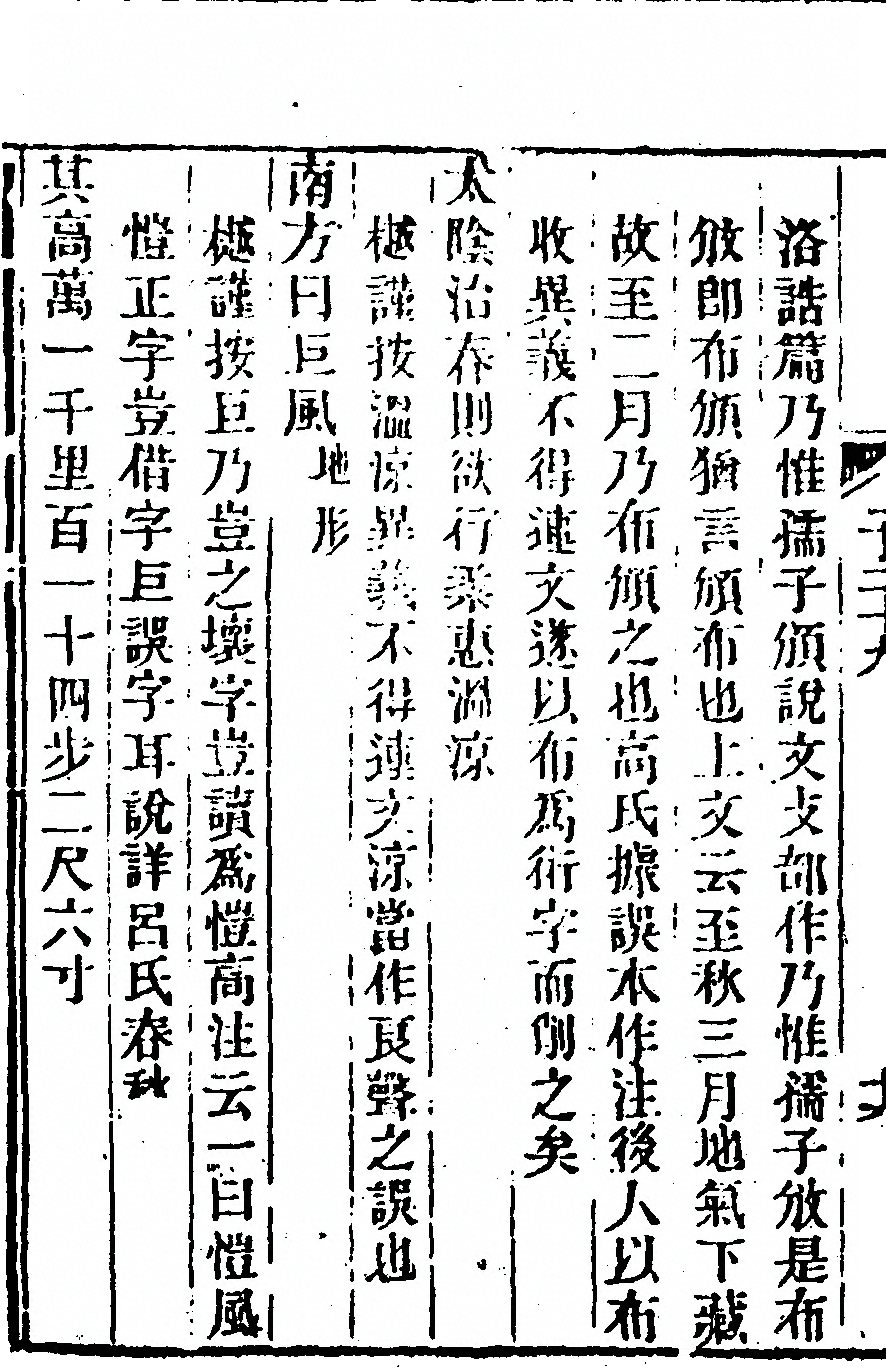 洛誥篇乃惟孺子頒說文攴部作乃惟孺子攽是布
攽即布頒猶言頒布也上文云至秋三月地氣下藏
故至二月乃布頒之也高氏據誤本作注後人以布
收異義不得連文遂以布爲衍字而刪之矣
太陰治春則欲行柔惠溫涼
樾謹按溫涼異義不得連文涼當作良聲之誤也
南方曰巨風 地形
樾謹按巨乃豈之壞字豈讀爲愷高注云一曰愷風
愷正字豈借字巨誤字耳說詳呂氏春秋
其高萬一千里百一十四步二尺六寸